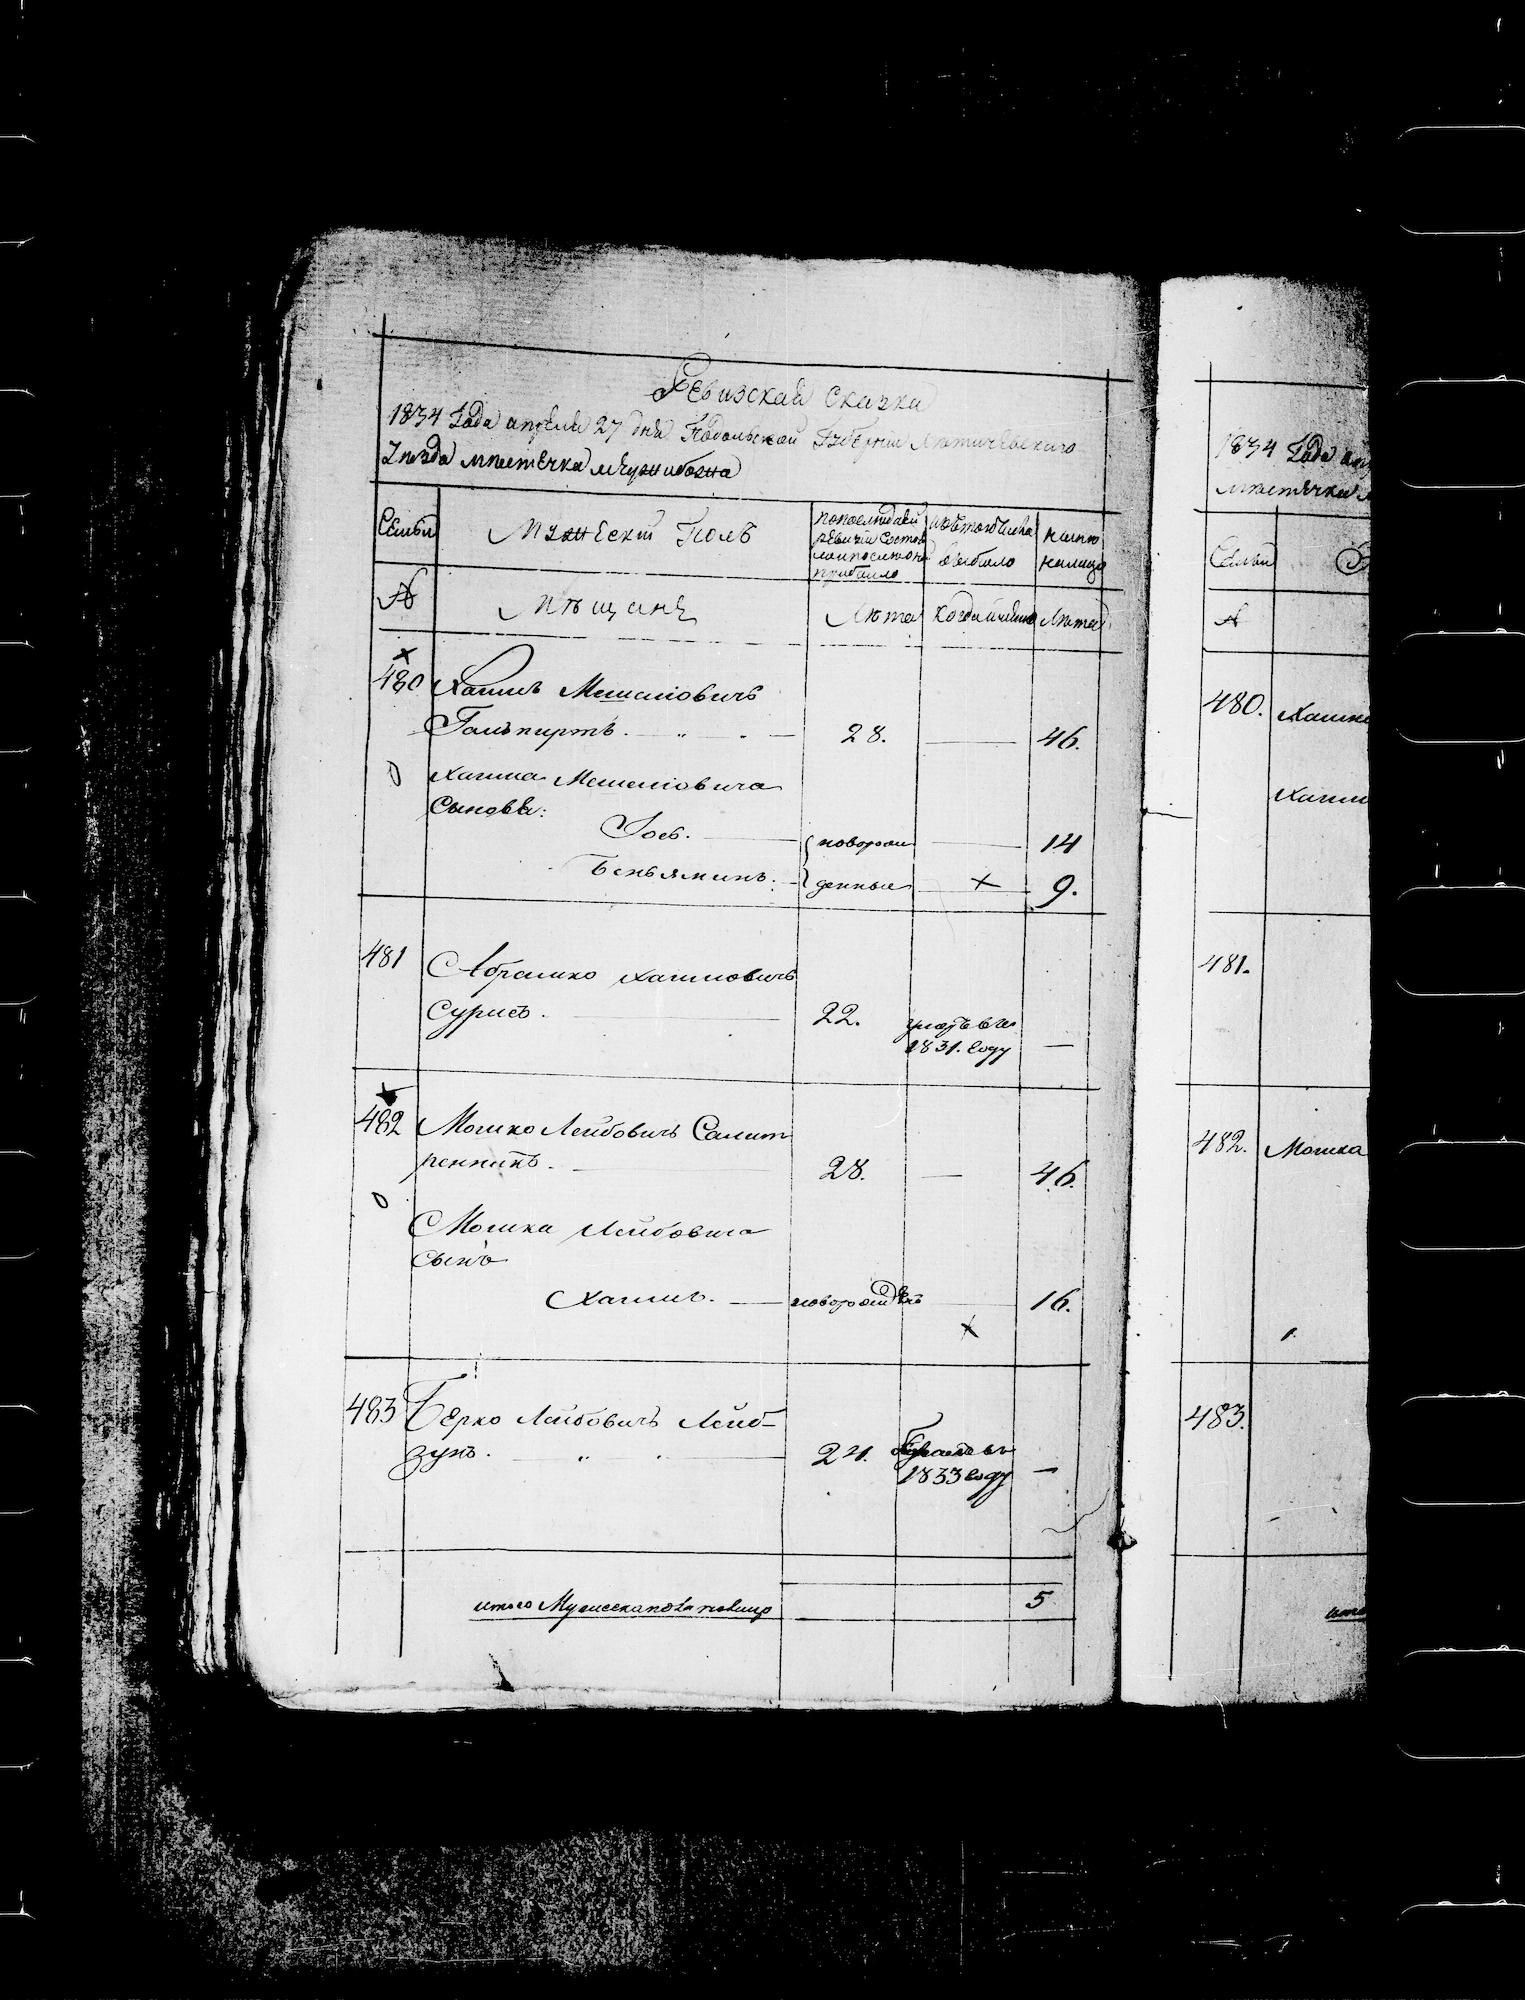 Ревизская Сказка
1834 Года апреля 27 дня Подольской Губернiи Лѣтичевскаго
Уѣзда мѣстечка Межибожа
Семьи
Мужескiй Полъ
по последней
ревизiи состоя
ло и после оной
прибыло
изъ того числа
выбыло
ныне
налицо
№
Мѣщане
Лѣта
Когда именно
Лѣта
480 Хаимъ Мошковичъ
Гальпиртъ. 28. 46.
Хаима Мошковича
Сыновья:
Iось. новорож 14
Беньяминъ. денные 9.
481 Абрамко Хаимовичъ
Сурисъ. 22. умре въ
1831. году —
482 Мошко Лейбовичъ Салит
ренникъ. 28. — 46.
Мошка Лейбовича
сынъ
Хаимъ. новорожденъ 16.
483 Берко Лейбовичъ Лейб-
зунъ. 24. въ
1833 году —
итого Мужеска пола налицо 5
1834 Года
мѣстечка
Семьи
№
480. Хаима
Хаима
481.
482. Мошка
483.